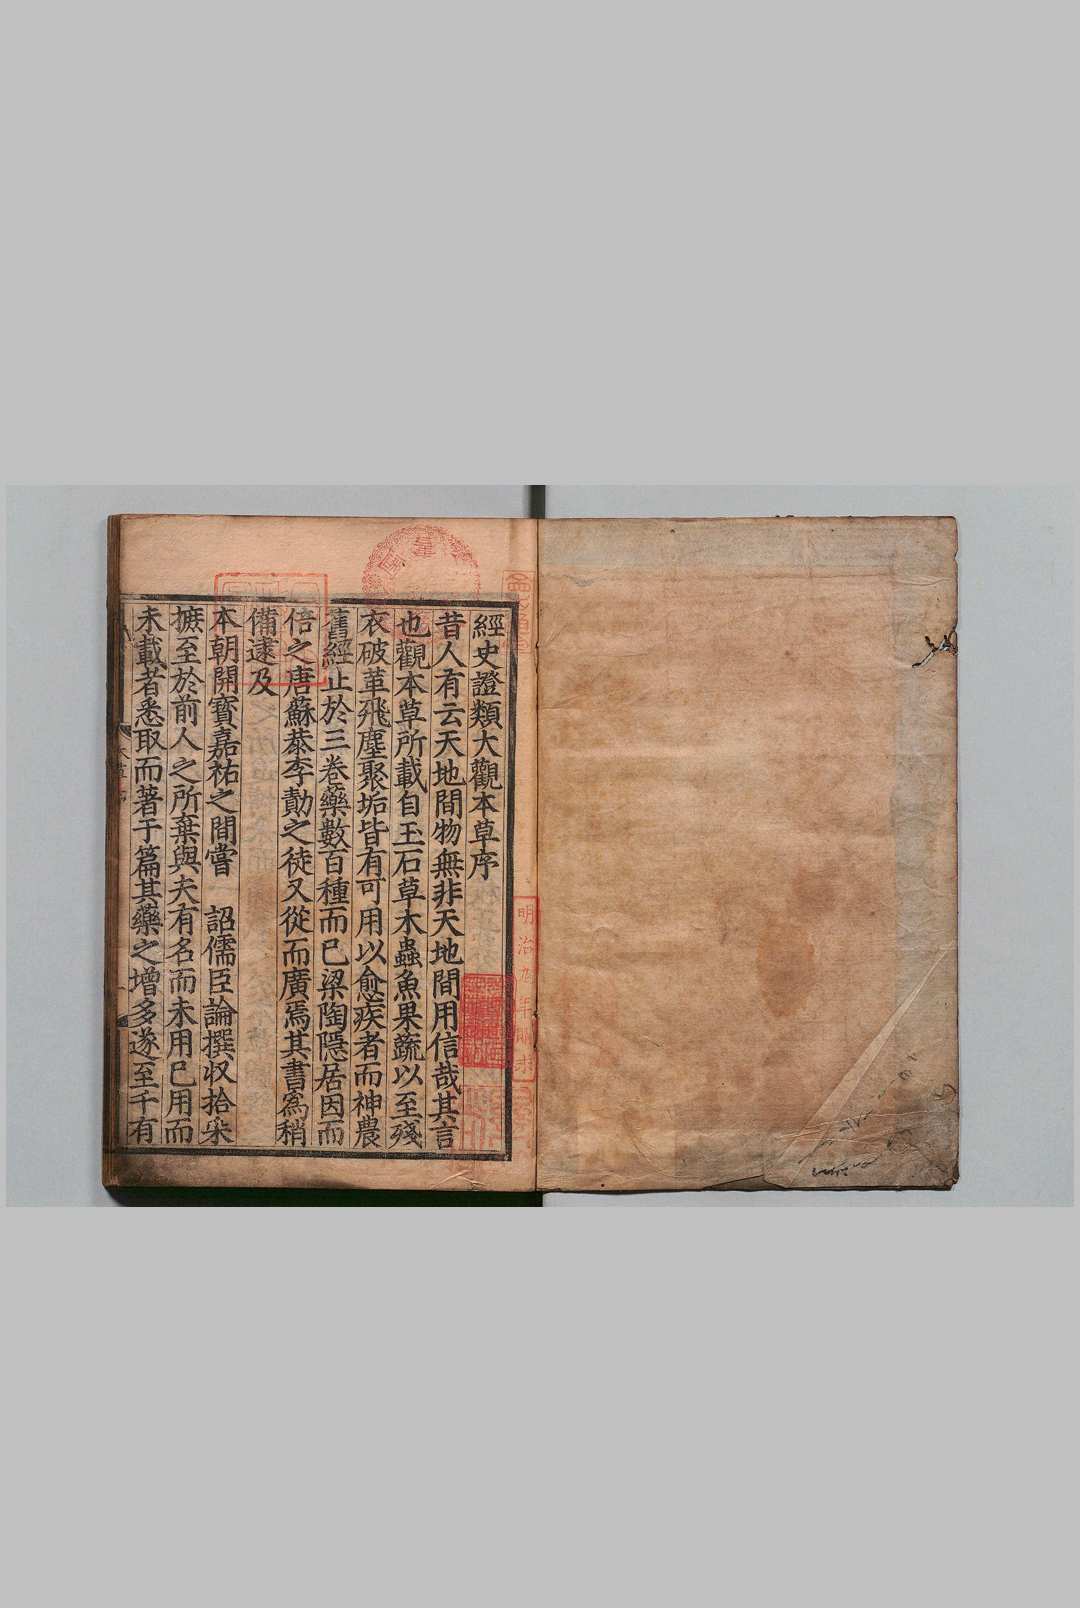 經史證類大觀本草序
昔人有云天地間物無非天地間用信哉其言
也觀本草所載自玉石草木蟲魚果蔬以至殘
衣破革飛塵聚垢皆有可用以愈疾者而神農
舊經止於三卷藥數百種而已梁陶隱居因而
倍之唐蘇恭李勣之徒又從而廣焉其書爲稍
備逮及
本朝開寶嘉祐之間嘗 詔儒臣論撰収拾采
摭至於前人之所棄與夫有名而未用已用而
未載者悉取而著于篇其藥之增多遂至千有
明治九年